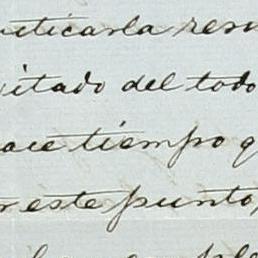 uticarla resu
vitado del todo
ace tiempo q
r este punto,